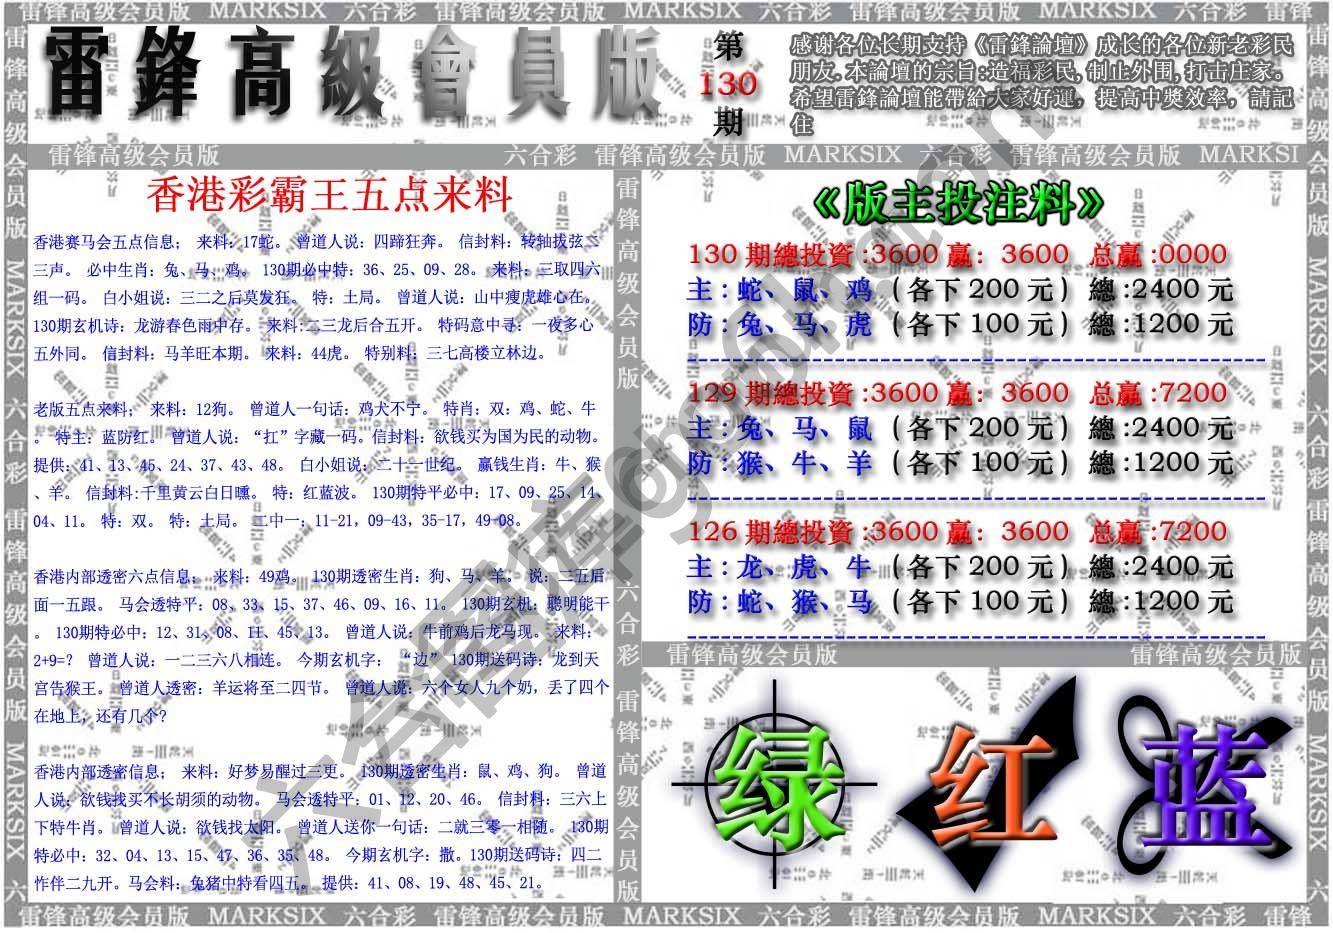 雷锋高级会员版 MARKSIX 六合彩 雷锋高级会员版 MARKSIX 六合彩 雷锋高级会员版 MARKSIX 六合彩 雷锋
雷鋒高級會員版
第
130
期
感谢各位长期支持《雷鋒論壇》成长的各位新老彩民
朋友.本論壇的宗旨:造福彩民,制止外围,打击庄家。
希望雷鋒論壇能帶給大家好運，提高中獎效率，請記
住
雷锋高级会员版 六合彩 雷锋高级会员版 MARKSIX 六合彩 雷锋高级会员版 MARKSI
雷锋高级会员版 MARKSIX 六合彩 雷锋高级会员版 MARKSIX 六
香港彩霸王五点来料
香港赛马会五点信息； 来料：17蛇。 曾道人说：四蹄狂奔。 信封料：转轴拔弦二
三声。 必中生肖：兔、马、鸡。 130期必中特：36、25、09、28。 来料：三取四六
组一码。 白小姐说：三二之后莫发狂。 特：土局。 曾道人说：山中瘦虎雄心在。
130期玄机诗：龙游春色雨中存。 来料:二三龙后合五开。 特码意中寻：一夜多心
五外同。 信封料：马羊旺本期。 来料：44虎。 特别料：三七高楼立林边。
老版五点来料； 来料：12狗。 曾道人一句话：鸡犬不宁。 特肖：双：鸡、蛇、牛
。 特主：蓝防红。 曾道人说：“扛”字藏一码。信封料：欲钱买为国为民的动物。
提供：41、13、45、24、37、43、48。 白小姐说：二十一世纪。 赢钱生肖：牛、猴
、羊。 信封料:千里黄云白日曛。 特：红蓝波。 130期特平必中：17、09、25、14、
04、11。 特：双。 特：土局。 二中一：11-21，09-43，35-17，49-08。
香港内部透密六点信息； 来料：49鸡。 130期透密生肖：狗、马、羊。 说：二五后
面一五跟。 马会透特平：08、33、15、37、46、09、16、11。 130期玄机：聪明能干
。 130期特必中：12、31、08、11、45、13。 曾道人说：牛前鸡后龙马现。 来料：
2+9=? 曾道人说：一二三六八相连。 今期玄机字： “边” 130期送码诗：龙到天
宫告猴王。曾道人透密：羊运将至二四节。 曾道人说：六个女人九个奶，丢了四个
在地上，还有几个?
香港内部透密信息； 来料：好梦易醒过三更。 130期透密生肖：鼠、鸡、狗。 曾道
人说：欲钱找买不长胡须的动物。 马会透特平：01、12、20、46。 信封料：三六上
下特牛肖。 曾道人说：欲钱找太阳。 曾道人送你一句话：二就三零一相随。 130期
特必中：32、04、13、15、47、36、35、48。 今期玄机字：撒。130期送码诗：四二
怍伴二九开。马会料：兔猪中特看四五。 提供：41、08、19、48、45、21。
雷锋高级会员版 六合彩 雷锋高级会员版
《版主投注料》
130 期總投資 :3600 贏：3600 总贏 :0000
主：蛇、鼠、鸡 （ 各下 200 元 ） 總 :2400 元
防：兔、马、虎 （ 各下 100 元 ） 總 :1200 元
129 期總投資 :3600 贏：3600 总贏 :7200
主：兔、马、鼠 （ 各下 200 元 ） 總 :2400 元
防：猴、牛、羊 （ 各下 100 元 ） 總 :1200 元
126 期總投資 :3600 贏：3600 总贏 :7200
主：龙、虎、牛 （ 各下 200 元 ） 總 :2400 元
防：蛇、猴、马 （ 各下 100 元 ） 總 :1200 元
雷锋高级会员版 雷锋高级会员版
绿 红 蓝
雷锋高级会员版 MARKSIX 六合彩 雷锋高级会员版 MARKSIX
雷锋高级会员版 MARKSIX 六合彩 雷锋高级会员版 MARKSIX 六合彩 雷锋高级会员版 MARKSIX 六合彩 雷锋